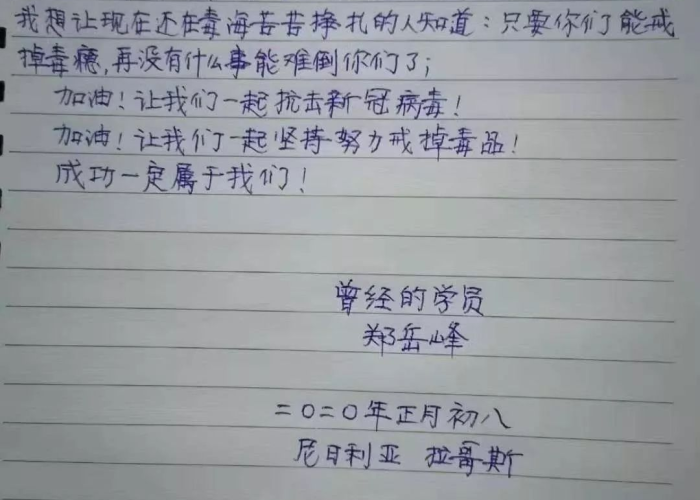 我想让现在还在毒海苦苦挣扎的人知道：只要你们能戒
掉毒瘾，再没有什么事能难倒你们了；
加油！让我们一起抗击新冠病毒！
加油！让我们一起坚持努力戒掉毒品！
成功一定属于我们！
曾经的学员
郑岳峰
二〇二〇年正月初八
尼日利亚 拉哥斯